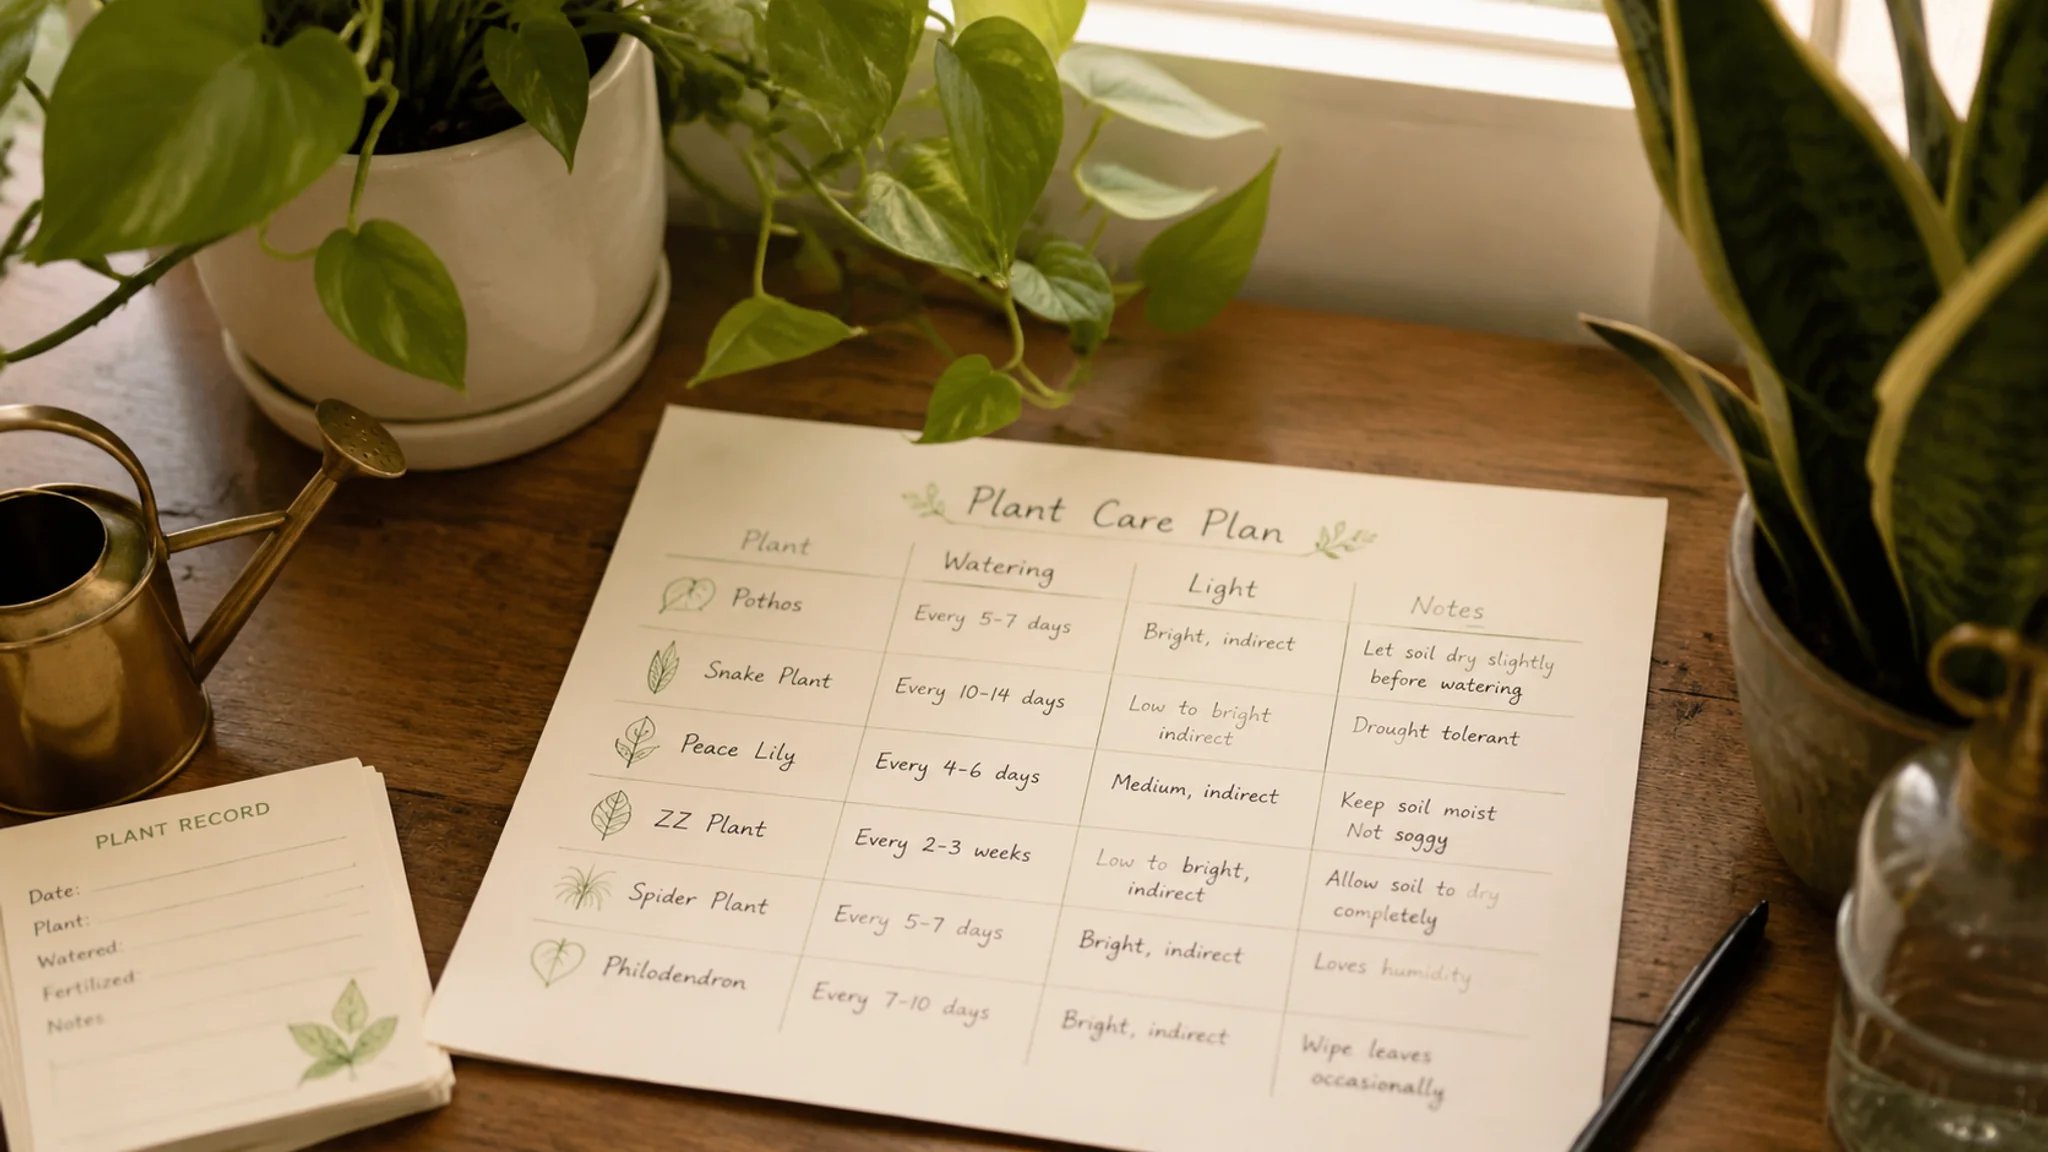 Plant Care Plan
Plant Watering Light Notes
Pothos Every 5-7 days Bright, indirect Let soil dry slightly
before watering
Snake Plant Every 10-14 days Low to bright Drought tolerant
indirect
Peace Lily Every 4-6 days Medium, indirect Keep soil moist
Not soggy
ZZ Plant Every 2-3 weeks Low to bright, Allow soil to dry
indirect completely
Spider Plant Every 5-7 days Bright, indirect Loves humidity
Philodendron Every 7-10 days Bright, indirect Wipe leaves
occasionally
PLANT RECORD
Date:
Plant:
Watered:
Fertilized:
Notes